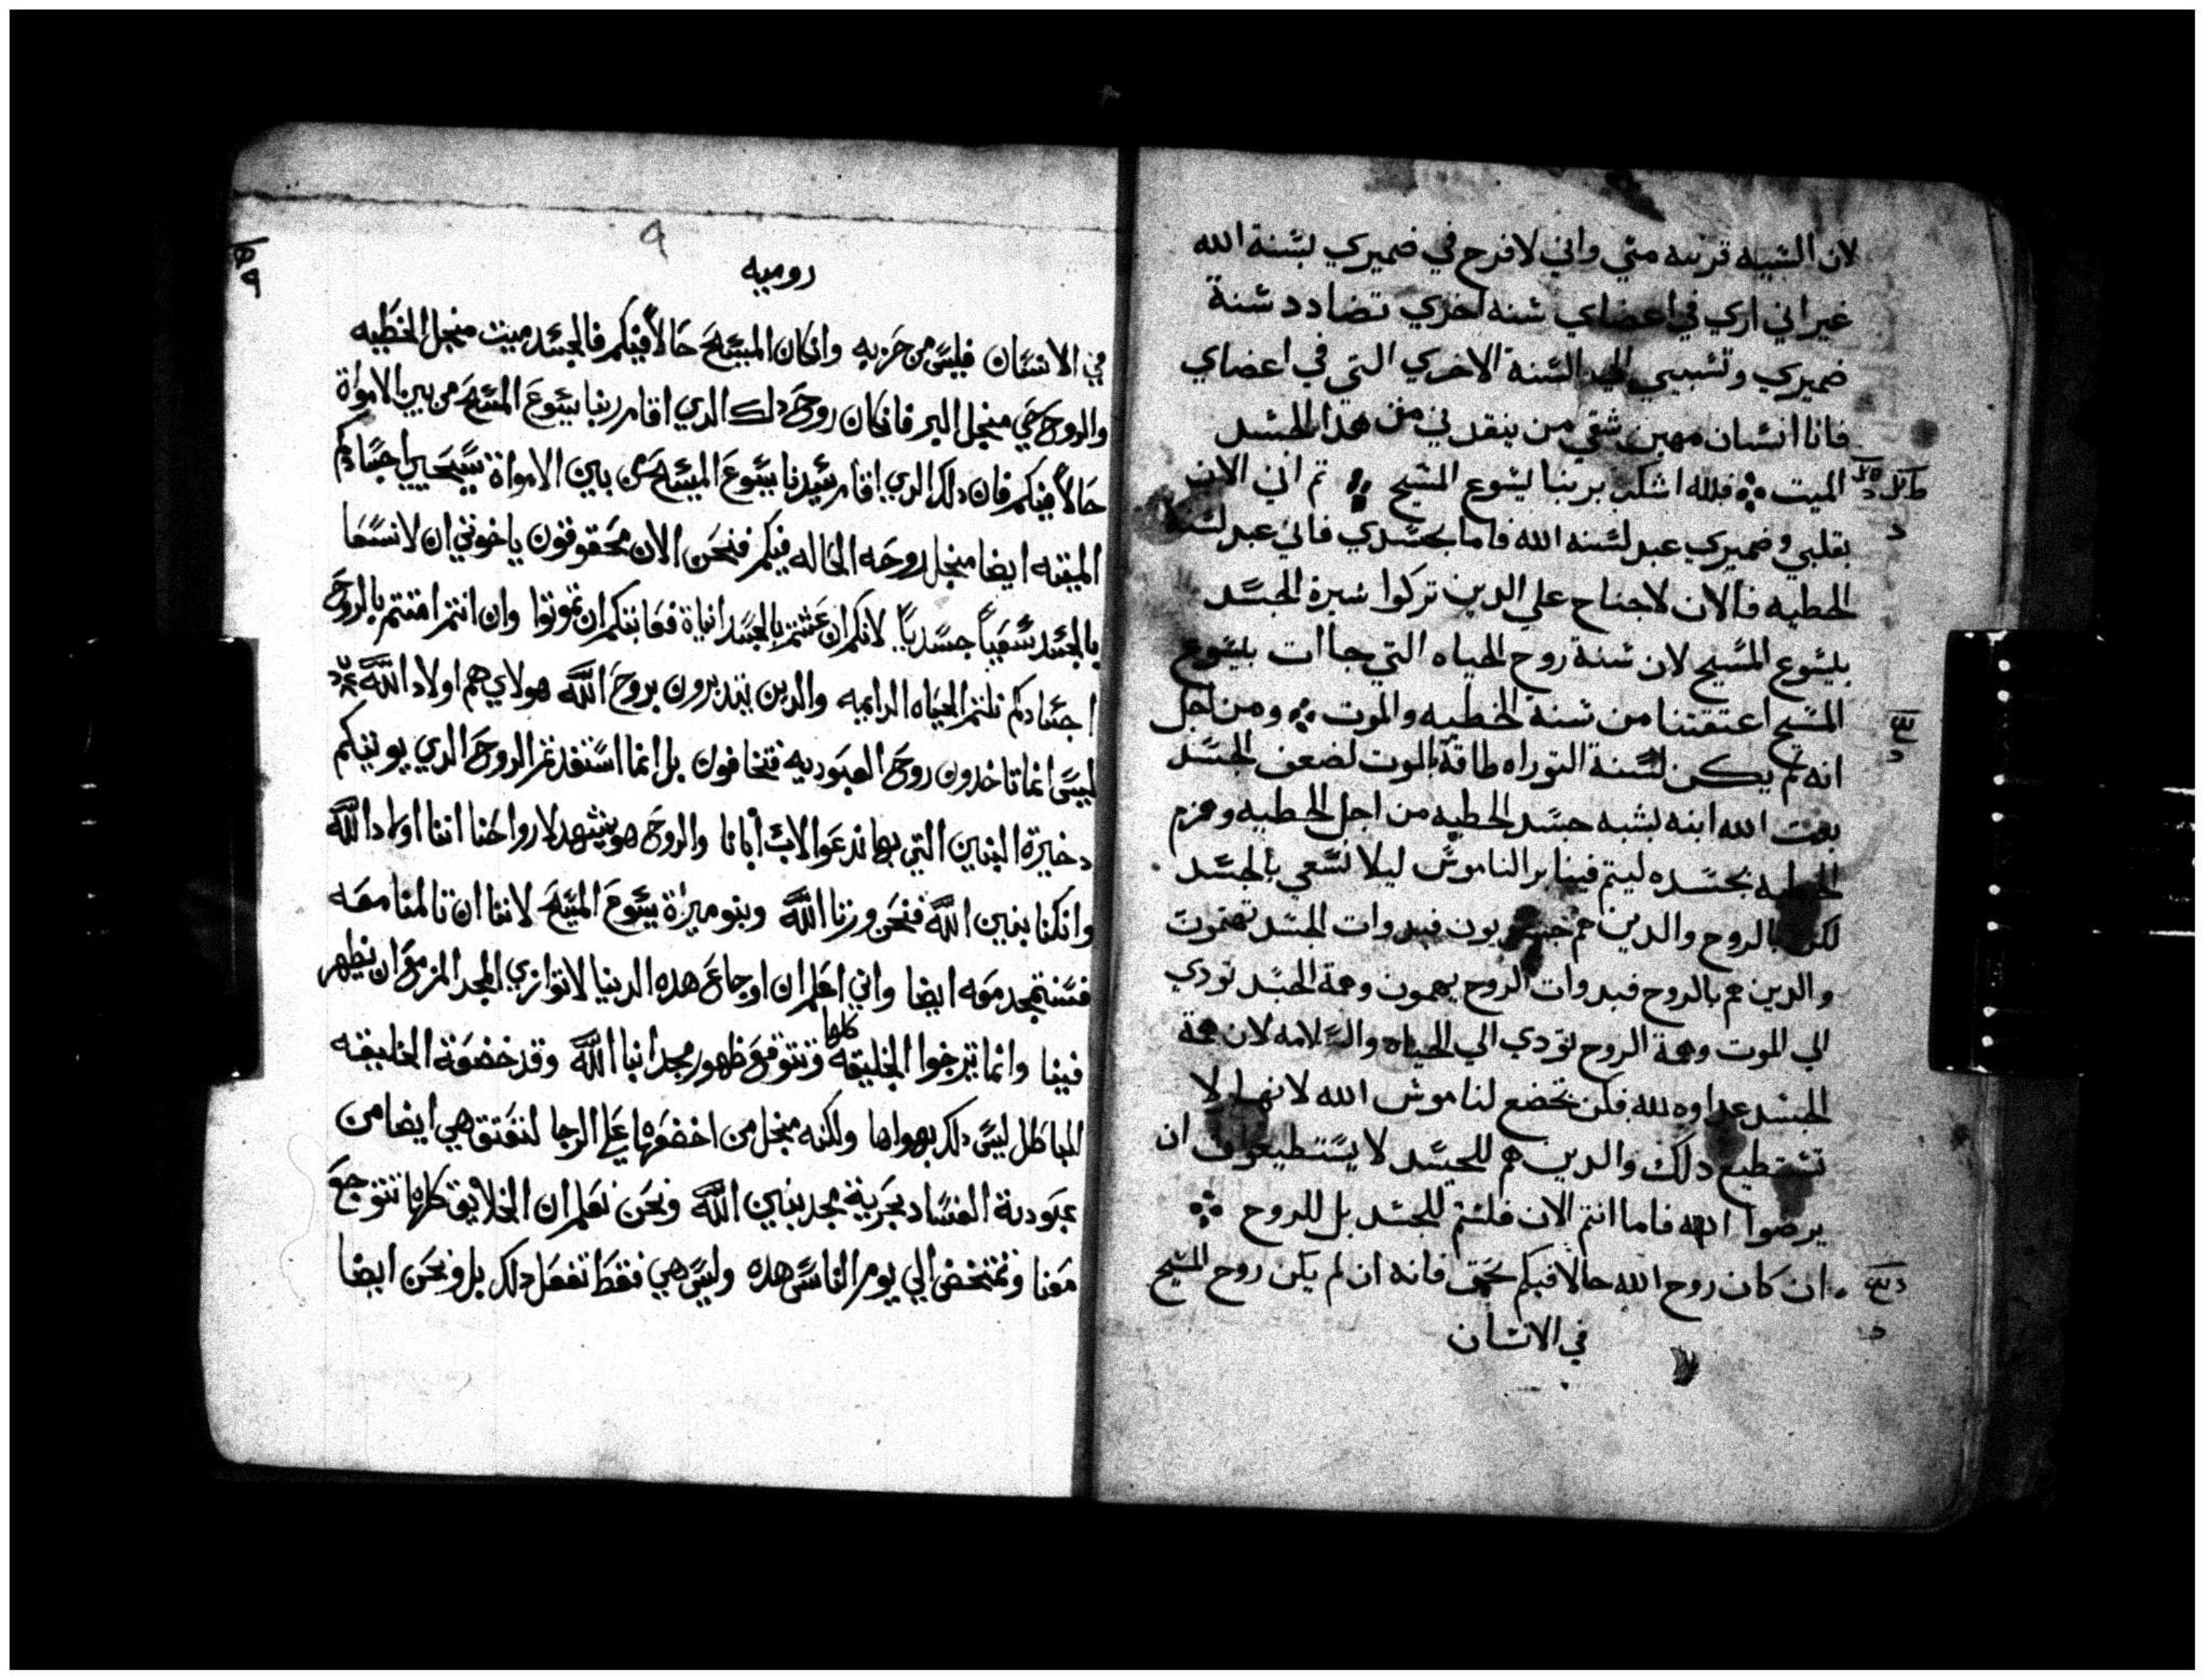 لان السيه قريبه مني واني لافرح في ضميري بسنة الله
غير اني اري في اعضاي سنه اخري تضادد سنة
ضميري وتسبيي الي السنة الاخري التي في اعضاي
فانا انسان مهين شقي من ينقدني من هدا الجسد
الميت فلله اشكر بربنا يسوع المسيح تم اني الان
بقلبي وضميري عبد لسنه الله فاما بجسدي فاني عبد لسنة
الخطيه فالان لا جناح علي الدين تركوا سيرة الجسد
بيسوع المسيح لان سنة روح الحياه التي جاات بيسوع
المسيح اعتقتنا من سنة الخطيه والموت ومن اجل
انه لم يكن لسنة التوراه طاقة بالموت لضعف الجسد
بعت الله ابنه بشبه جسد الخطيه من اجل الخطيه وهزم
الخطيه بجسده ليتم فينا بر الناموس ليلا نسعي بالجسد
لكن بالروح والدين هم فبدوات الجسد تهموت
والدين هم بالروح فبدوات الروح يهمون وهمة الجسد تودي
الي الموت وهمة الروح تودي الي الحياه والسلامه لان همة
الجسد عداوه لله فلن تخضع لناموس الله لانها لا
تستطيع دلك والدين هم للجسد لا يستطيعون ان
يرضوا الله فاما انتم الان فلستم للجسد بل للروح
ان كان روح الله حالا فيكم بحق فانه ان لم يكن روح المسيح
في الانسان
روميه
في الانسان فليس من حزبه وان كان المسيح حالا فيكم فالجسد ميت منجل الخطيه
والروح حي منجل البر فان كان روح دلك الدي اقام ربنا يسوع المسيح من بين الامواة
حالا فيكم فان دلك الدي اقام سيدنا يسوع المسيح من بين الامواة سيحيي اجسادكم
الميته ايضا منجل روحه الحاله فيكم فنحن الان محقوقون ياخوتي ان لا نسعا
بالجسد سعيا جسديا لانكم ان عشتم بالجسد انياة فعاقبتكم ان تموتوا وان انتم امتتم بالروح
اجسادكم نلتم الحياه الدايمه والدين يتدبرون بروح الله هولاي هم اولاد الله
ليس انما تاخدون روح العبوديه فتخافون بل انما استفدتم الروح الدي يوتيكم
دخيرة البنين التي بها ندعوا الاب ابانا والروح هو يشهد لارواحنا اننا اولاد الله
وان كنا بنين الله فنحن ورتا الله وبنو ميراة يسوع المسيح لاننا ان تالمنا معه
فسنتمجد معه ايضا واني اعلم ان اوجاع هده الدنيا لاتوازي المجد المزمع ان يظهر
فينا وانما ترجوا الخليقه كلها وتتوقع ظهور مجد ابنا الله وقد خضعة الخليقه
للباطل ليس دلك بهواها ولكنه منجل من اخضعها علي الرجا لتعتق هي ايضا من
عبودية الفساد بحرية مجد بنين الله ونحن نعلم ان الخلايق كلها تتوجع
معنا وتمتخض الي يوم الناس هده وليس هي فقط تفعل دلك بل ونحن ايضا